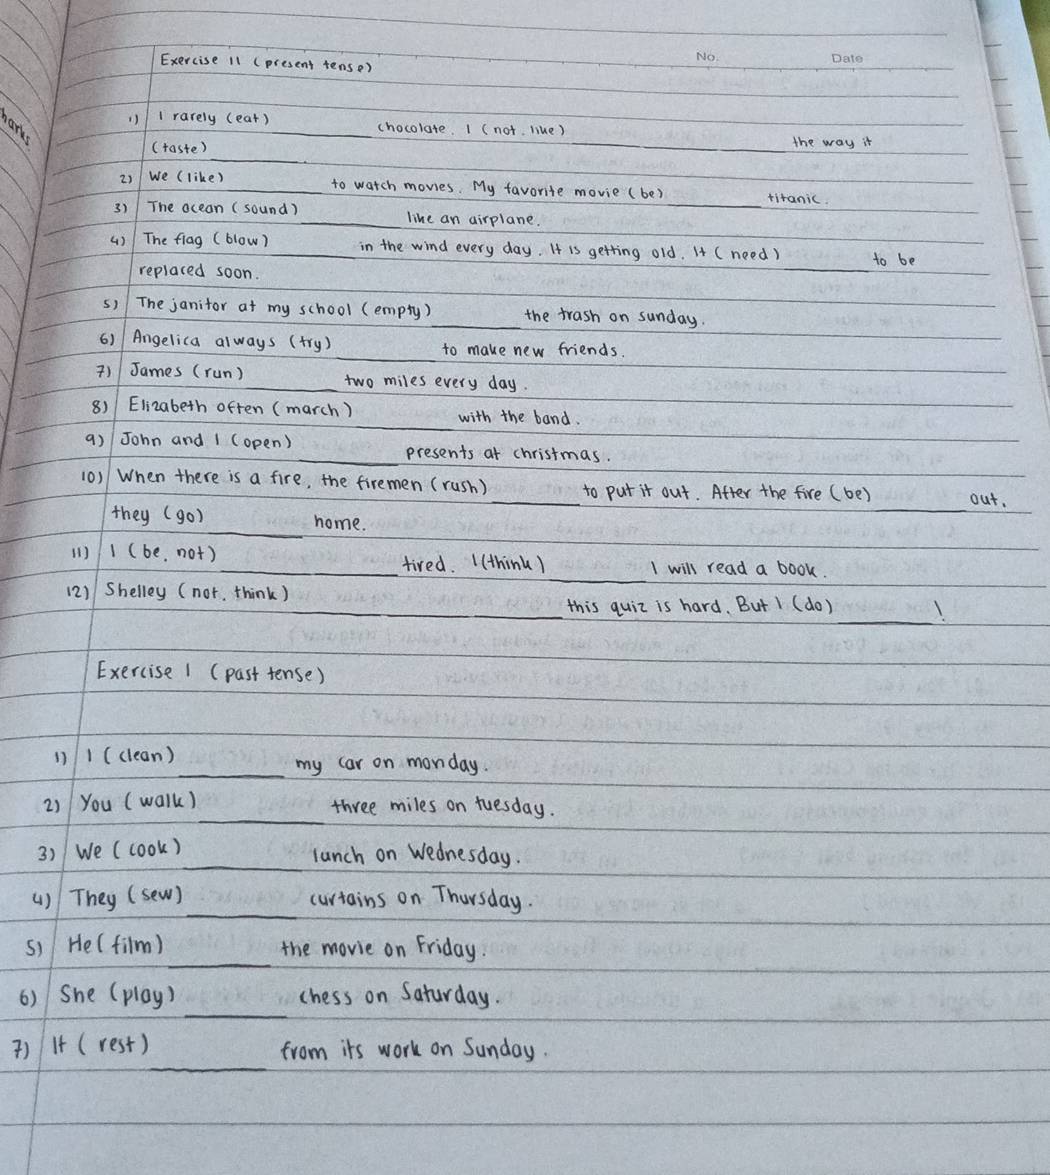 No. Date
Exercise 11 (present tense)
harks
1) I rarely (eat) ________ chocolate. I (not. like) ________________ the way it
(taste) ________.
2) We (like) ________ to watch movies. My favorite movie (be) ________ titanic.
3) The ocean (sound) ________ like an airplane.
4) The flag (blow) ________ in the wind every day. It is getting old. It (need) ________ to be
replaced soon.
5) The janitor at my school (empty) ________ the trash on sunday.
6) Angelica always (try) ________ to make new friends.
7) James (run) ________ two miles every day.
8) Elizabeth often (march) ________ with the band.
9) John and I (open) ________ presents at christmas.
10) When there is a fire, the firemen (rush) ________ to put it out. After the fire (be) ________ out,
they (go) ________ home.
11) I (be. not) ________________ tired. I (think) ________ I will read a book.
12) Shelley (not. think) ________________ this quiz is hard. But I (do) ________!
Exercise 1 (past tense)
1) I (clean) ________ my car on monday.
2) You (walk) ________ three miles on tuesday.
3) We (cook) ________ lunch on Wednesday.
4) They (sew) ________ curtains on Thursday.
5) He (film) ________ the movie on Friday.
6) She (play) ________ chess on Saturday.
7) It (rest) ________ from its work on Sunday.